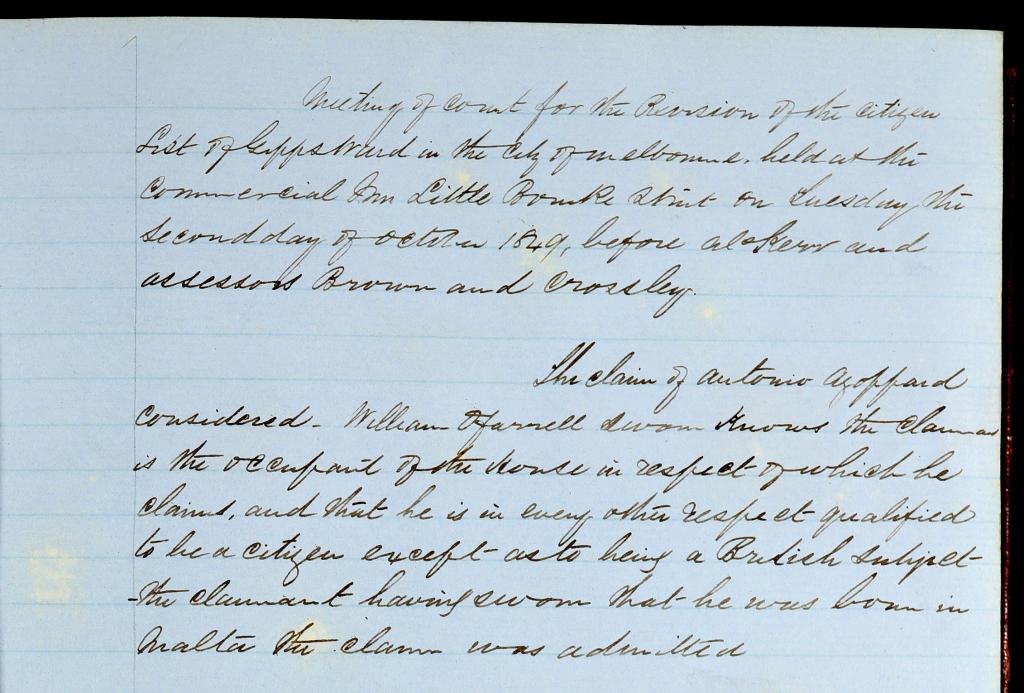 Meeting of Court for the Revision of the Citizen
List of Gipps Ward in the City of Melbourne, held at the
Commercial Inn Little Bourke Street on Tuesday the
second day of October 1849, before Ald Kerr and
assessors Brown and Crossley.
The claim of Antonio Azzopard
considered - William O'Farrell sworn Knows the claimant
is the occupant of the House in respect of which he
claims, and that he is in every other respect qualified
to be a citizen except as to being a British subject
- the claimant having sworn that he was born in
Malta the claim was admitted